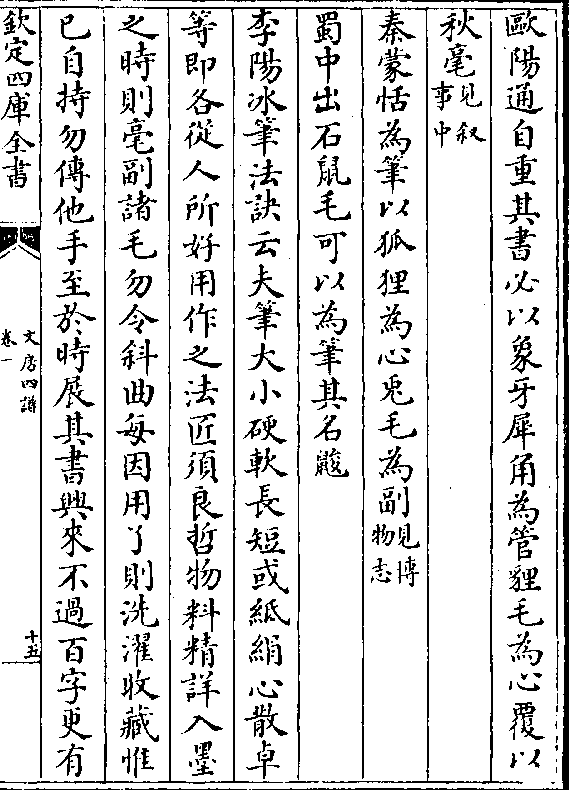 歐陽通自重其書必以象牙犀角為管貍毛為心覆以
秋毫見叙事中
秦蒙恬為筆以狐狸為心兎毛為副見博物志
蜀中出石䑕毛可以為筆其名䶅
李陽冰筆法訣云夫筆大小硬軟長短或紙絹心散卓
等即各從人所好用作之法匠須良哲物料精詳入墨
之時則毫副諸毛勿令斜曲每因用了則洗濯收藏惟
已自持勿傳他手至於時展其書興來不過百字更有
欽定四庫全書
文房四譜
卷一
十五